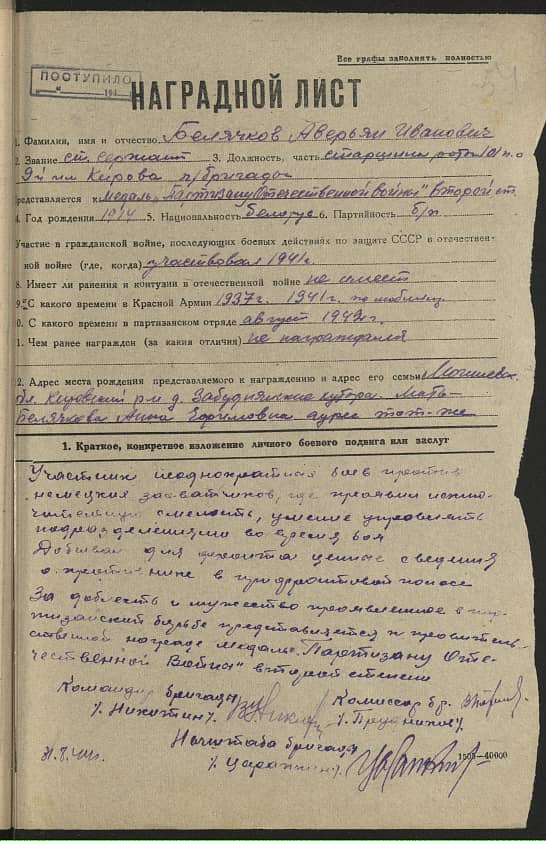 Все графы заполнять полностью
ПОСТУПИЛО
194
НАГРАДНОЙ ЛИСТ
1. Фамилия, имя и отчество Белячков Аверьян Иванович
2. Звание ст. сержант 3. Должность, часть старшина роты 101 п.о
им Кирова п/бригады
Представляется к медаль "Партизану Отечественной войны" второй ст.
4. Год рождения 1914 5. Национальность белорус 6. Партийность б/п
Участие в гражданской войне, последующих боевых действиях по защите СССР в отечествен-
ной войне (где, когда) участвовал 1941 г.
8. Имеет ли ранения и контузии в отечественной войне не имеет
9. С какого времени в Красной Армии 1937 г. 1941 г. по мобилиз.
0. С какого времени в партизанском отряде август 1942 г.
1. Чем ранее награжден (за какие отличия) не награждался
2. Адрес места рождения представляемого к награждению и адрес его семьи Могилевск.
обл. Кировский р-н д. хутора. Мать-
Белячкова Анна Ефимовна адрес тот-же
1. Краткое, конкретное изложение личного боевого подвига или заслуг
Участник неоднократных боев против
немецких захватчиков, где проявил исклю-
чительную смелость, умение управлять
подразделениями во время боя
Добывал для фронта ценные сведения
о противнике в прифронтовой полосе
За доблесть и мужество проявленное в пар-
тизанской борьбе представляется к правитель-
ственной награде медаль "Партизану Оте-
чественной Войны" второй степени
Командир бригады Комиссар бр.
/. Никитин /.
Начштаба бригады
1505—40000